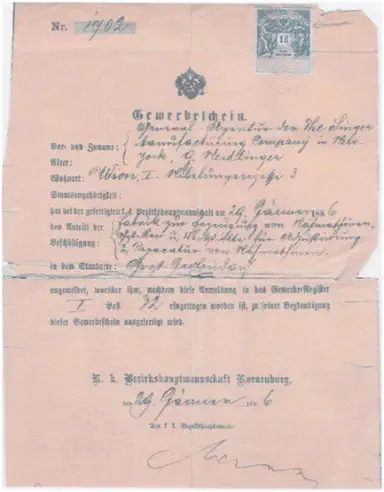 Nr. 1902
16
Gewerbeschein.
General-Agentur der The Singer
Vor- und Zuname: Manufacturing Company in New-
Alter: York, G. Neidlinger
Wohnort: Wien, I. Nibelungengasse 3
Staatsangehörigkeit:
hat bei der gefertigten k. k. Bezirkshauptmannschaft am 29 Jänner 1886
den Antritt der Fabrik zur Erzeugung von Nähmaschinen-
Beschäftigung: für Adjustirung
u Reparatur von Nähmaschinen
in dem Standorte: Floridsdorf
angemeldet, worüber ihm, nachdem diese Anmeldung in das Gewerbe-Register
I Post 72 eingetragen worden ist, zu seiner Beglaubigung
dieser Gewerbeschein ausgefertigt wird.
K. k. Bezirkshauptmannschaft Korneuburg,
den 29. Jänner 1886
Der k. k. Bezirkshauptmann: